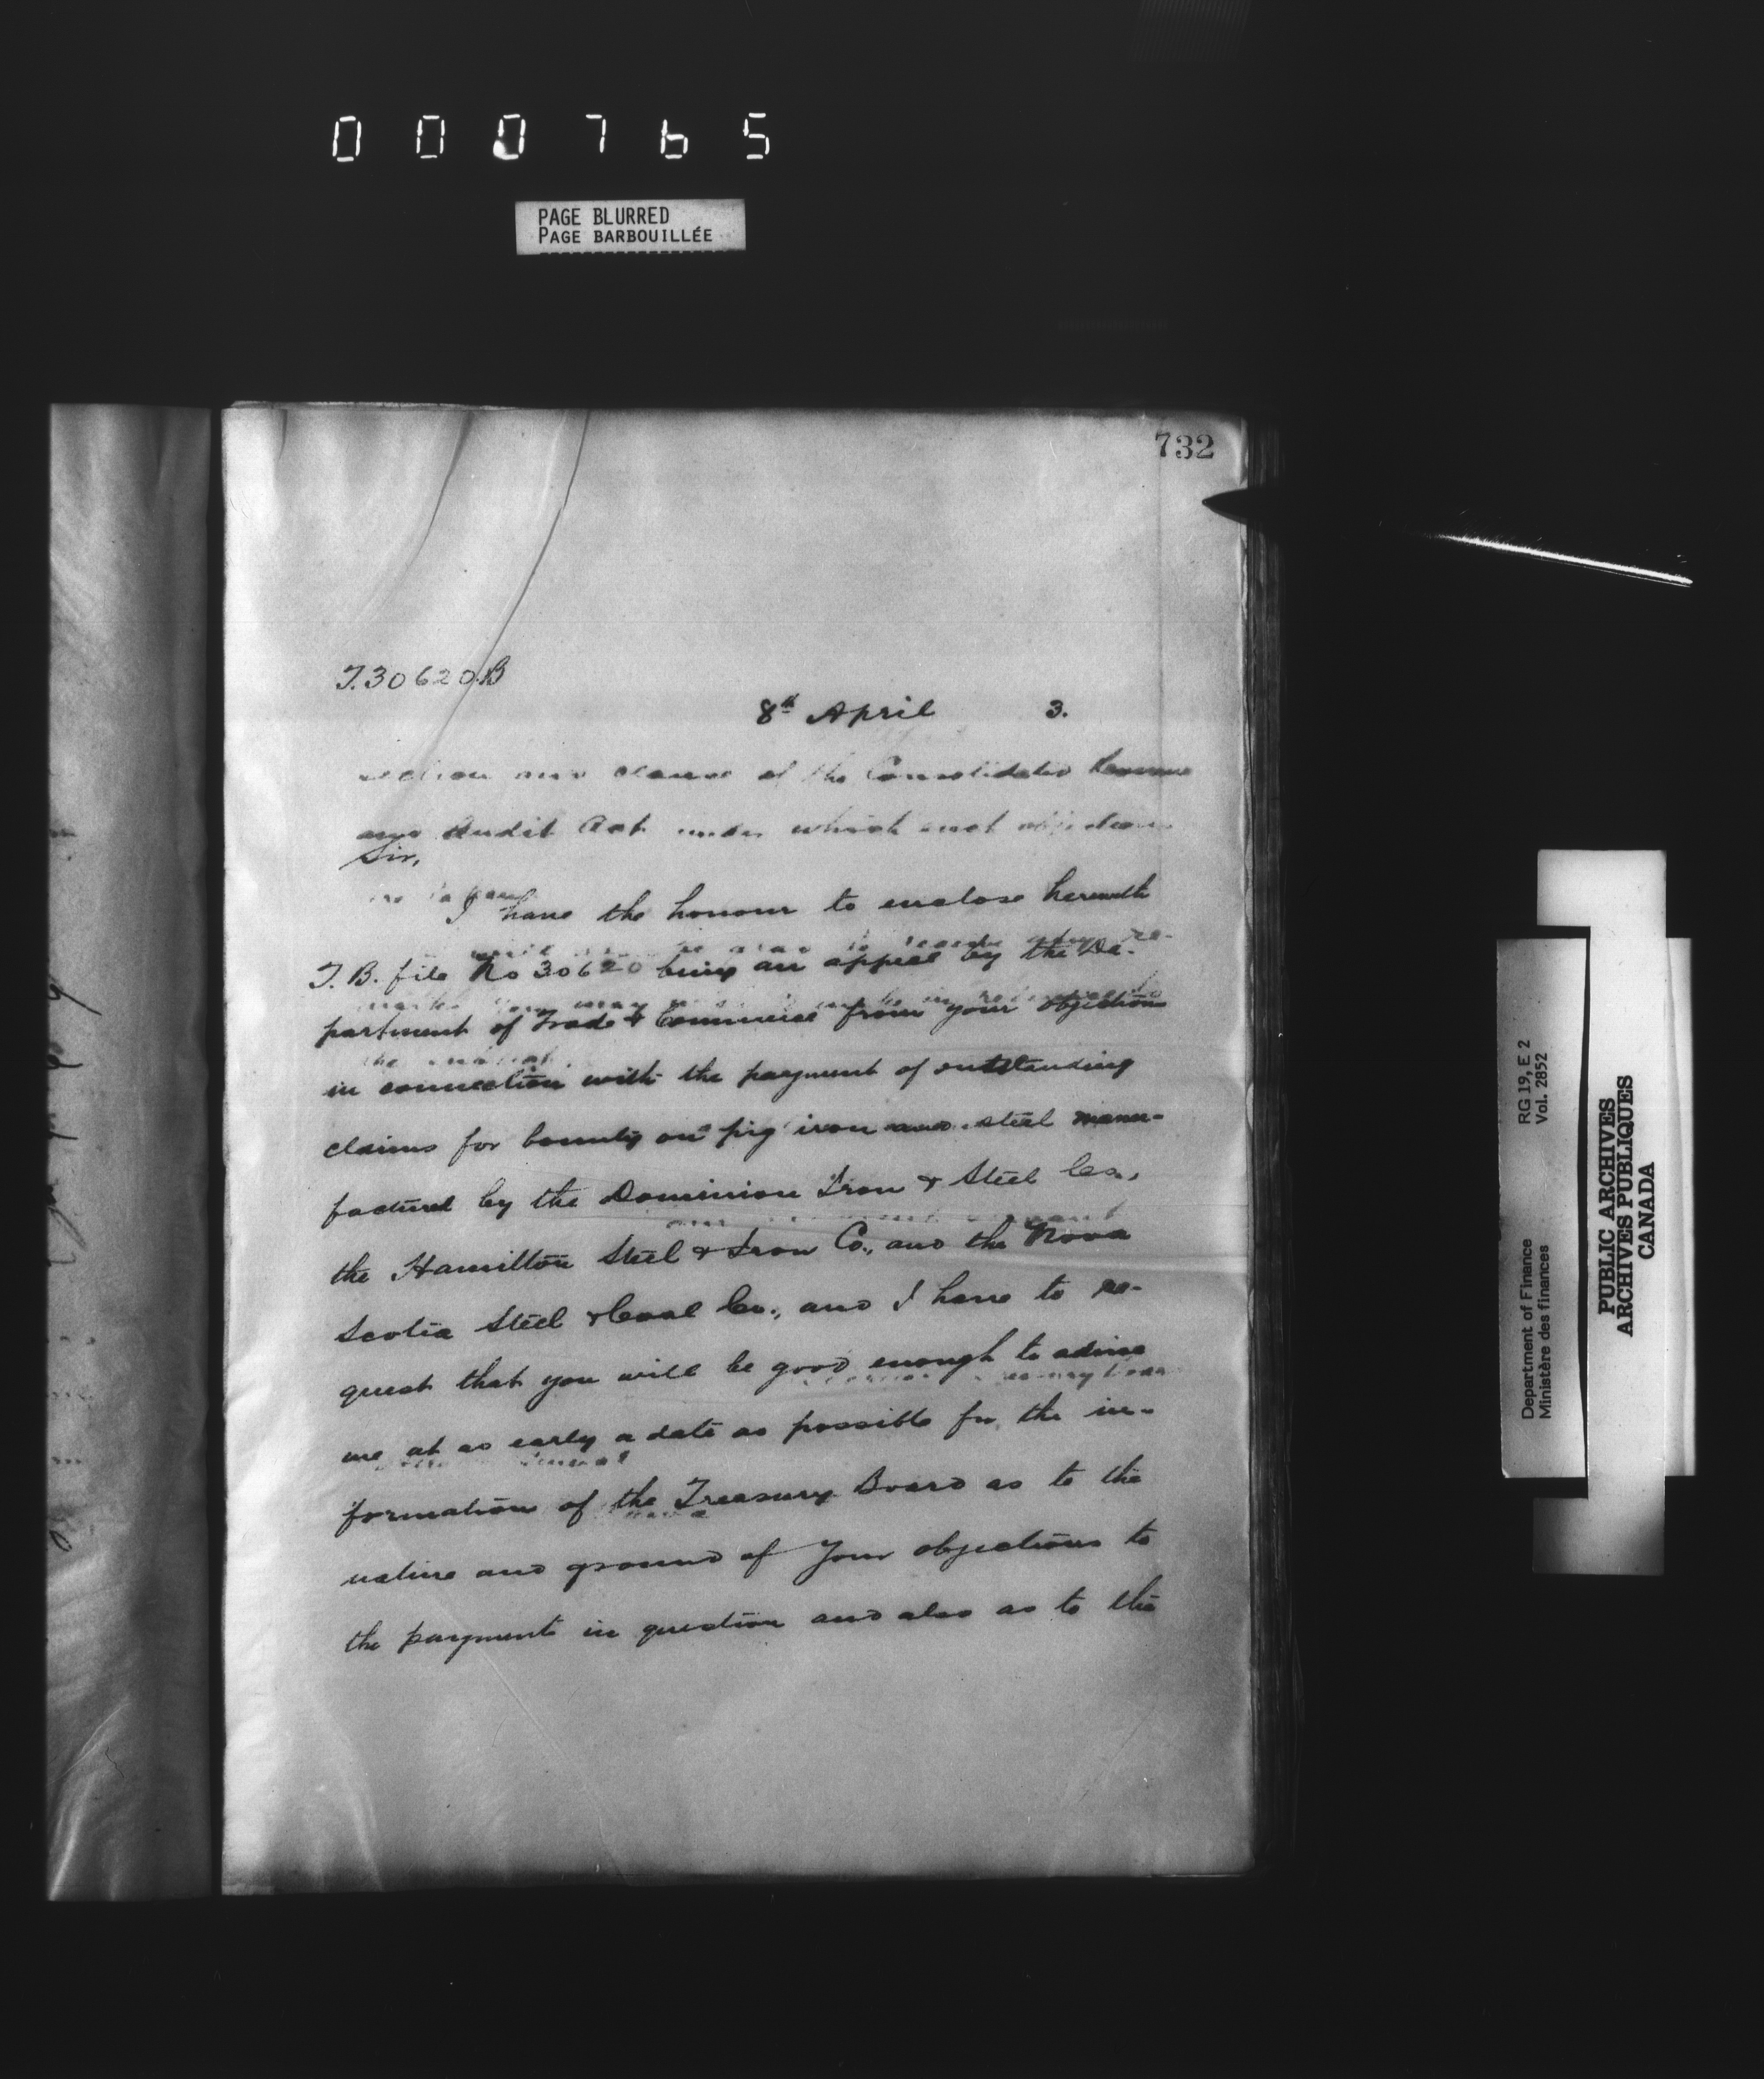 000765
PAGE BLURRED
PAGE BARBOUILLÉE
732
T.30620.B
8th April 3.
section and clause of the Consolidated Revenue
and Audit Act under which such objections
Sir,
I have the honour to enclose herewith
T.B. file No 30620 being an appeal by the De-
partment of Trade & Commerce from your objections
in connection with the payment of outstanding
claims for bounty on pig iron and steel manu-
factured by the Dominion Iron & Steel Co.,
the Hamilton Steel & Iron Co., and the Nova
Scotia Steel & Coal Co., and I have to re-
quest that you will be good enough to advise
me at as early a date as possible for the in-
formation of the Treasury Board as to the
nature and ground of your objections to
the payments in question and also as to the
RG 19, E 2
Vol. 2852
Department of Finance
Ministère des finances
PUBLIC ARCHIVES
ARCHIVES PUBLIQUES
CANADA